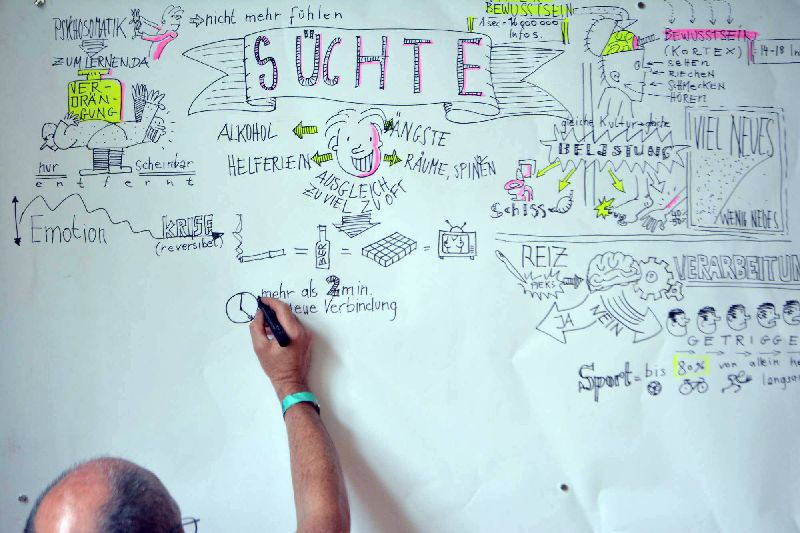 PSYCHOSOMATIK
⇒ nicht mehr fühlen
ZUM LERNEN DA
VER-
DRÄN-
GUNG
nur scheinbar
entfernt
SÜCHTE
ALKOHOL
ÄNGSTE
HELFERLEIN
RÄUME, SPINNEN
AUSGLEICH
ZU VIEL ZU OFT
Emotion
KRISE
(reversibel)
= BIER = =
mehr als 2 min.
neue Verbindung
BEWUSSTSEIN
1 sec -
Infos.
BEWUSSTSEIN
(KORTEX)
14-18
SEHEN
RIECHEN
SCHMECKEN
HÖREN
gleiche
BELASTUNG
Schiss
VIEL NEUES
WENIG NEUES
REIZ
PIEKS
VERARBEITUN
JA
NEIN
GETRIGGE
Sport = bis 80% von allein
langsa